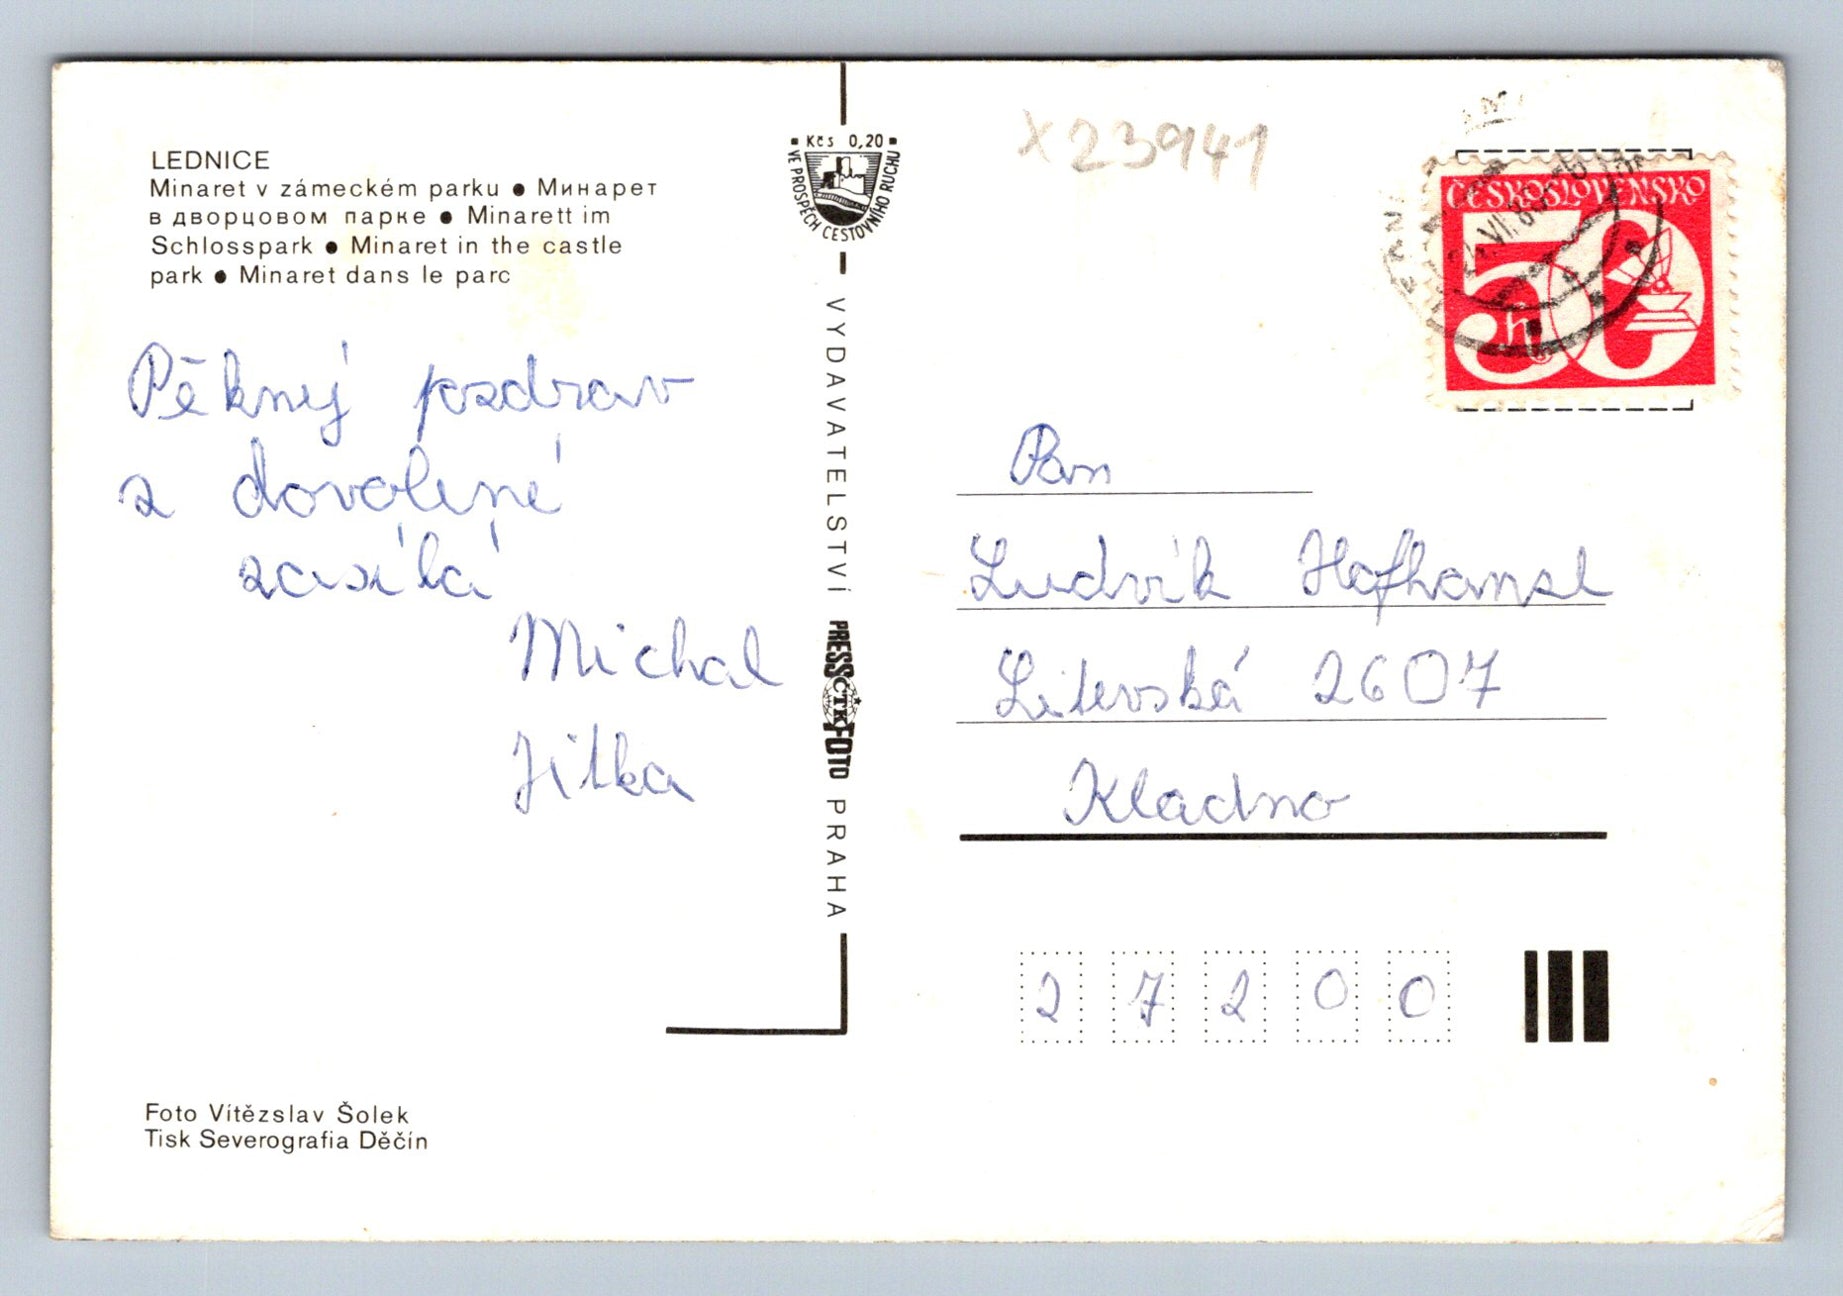 LEDNICE
Minaret v zámeckém parku ● Минарет
в дворцовом парке ● Minarett im
Schlosspark ● Minaret in the castle
park ● Minaret dans le parc
Pěkný pozdrav
z dovolené
zasílá
Michal
Jitka
Foto Vítězslav Šolek
Tisk Severografia Děčín
Kčs 0,20
VE PROSPĚCH CESTOVNÍHO RUCHU
VYDAVATELSTVÍ PRESSFOTO PRAHA
ČTK
X23941
ČESKOSLOVENSKO
50
h
Pan
Ludvík Hofhansl
Litevská 2607
Kladno
27200